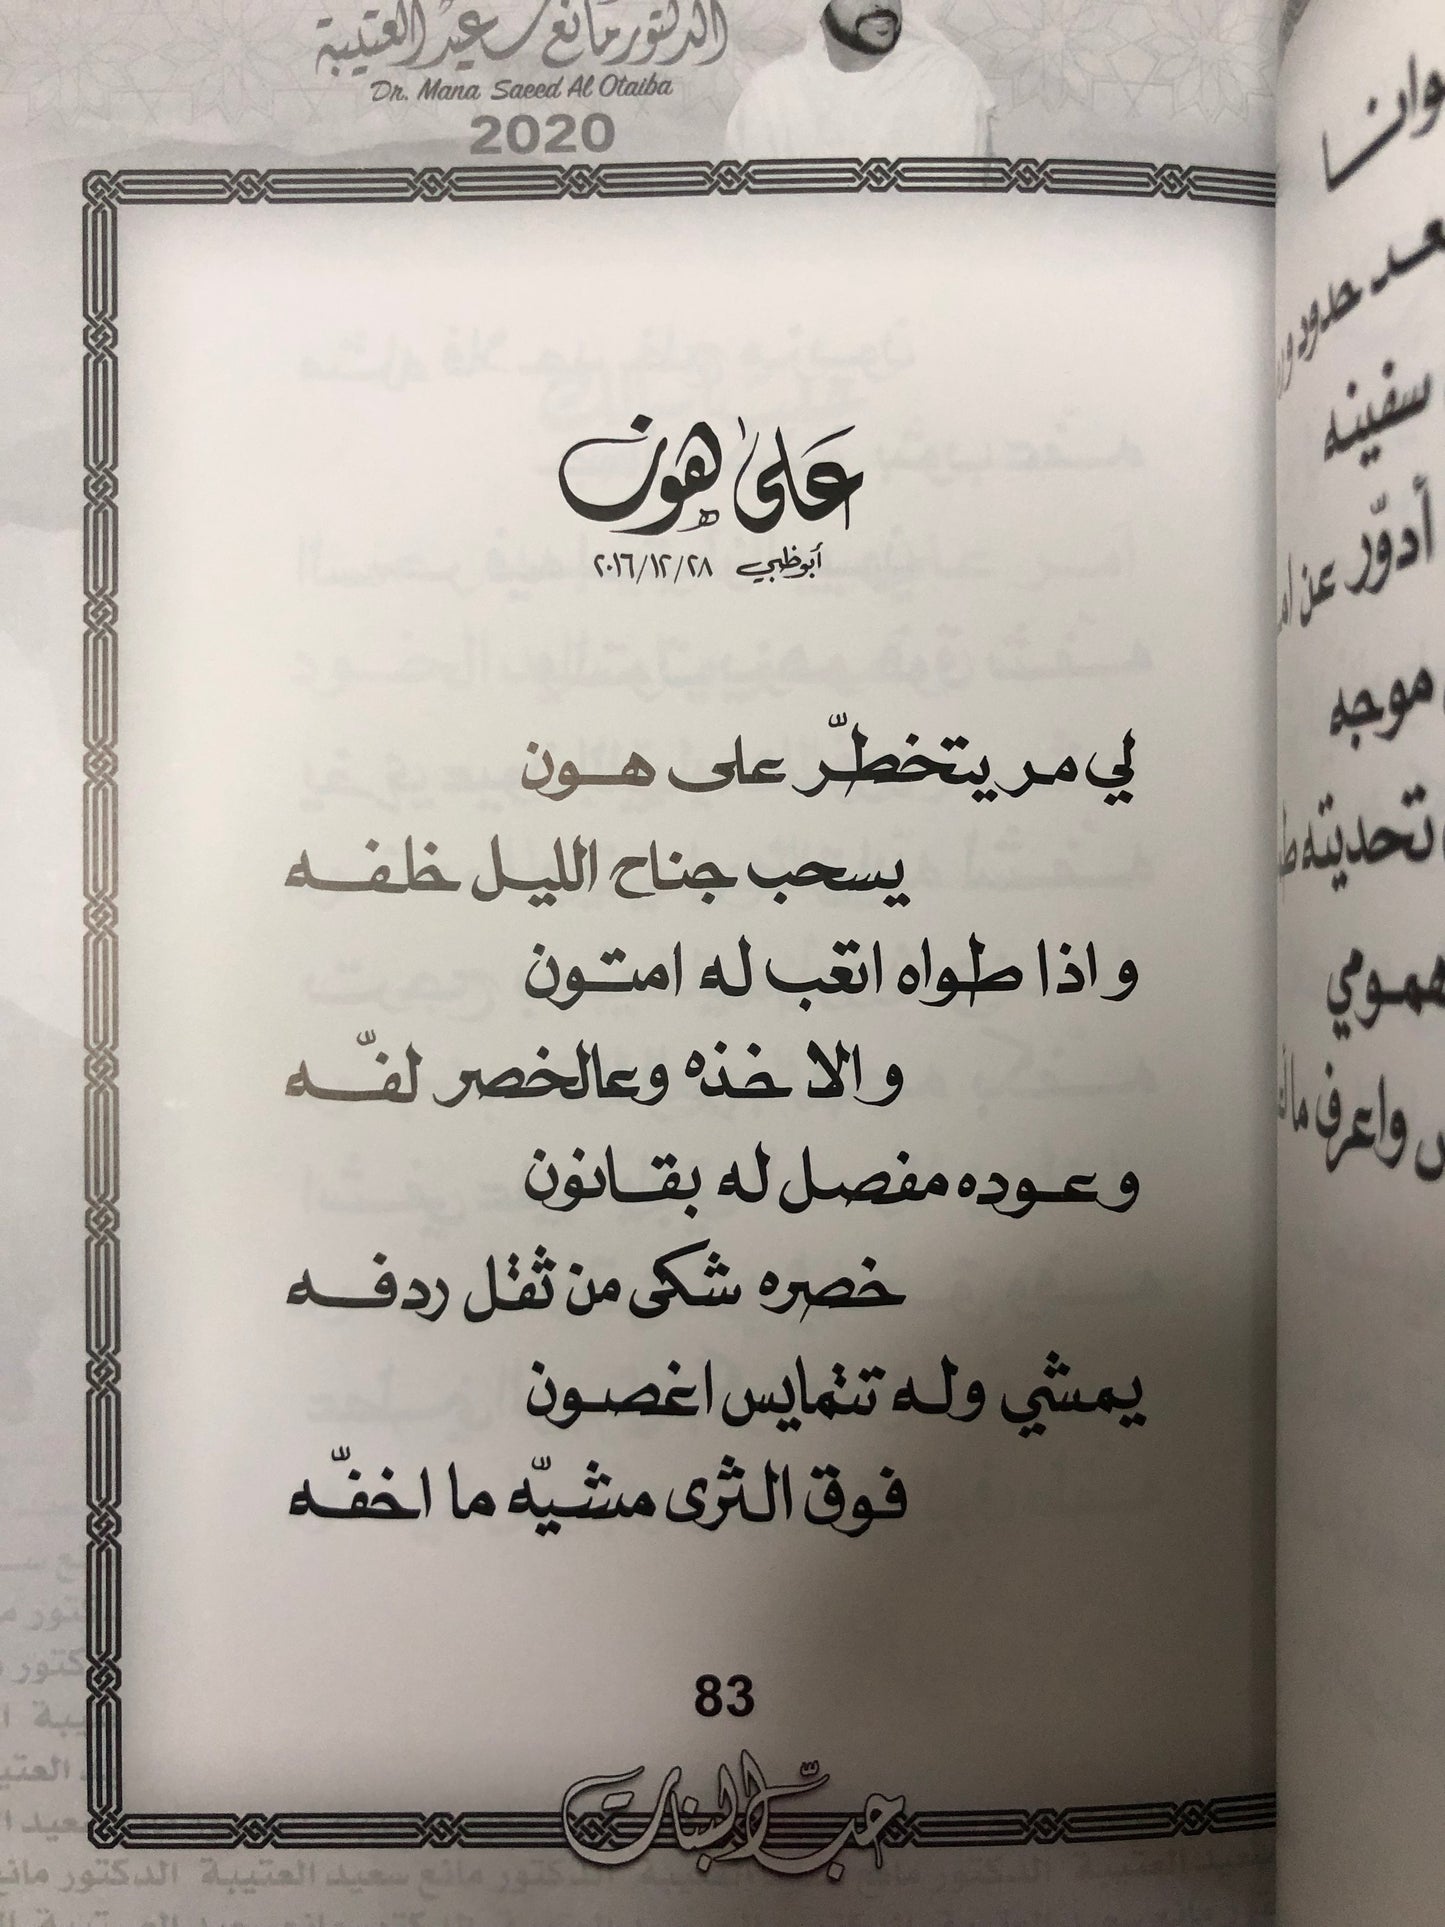 الدكتور مانع سعيد العتيبة
Dr. Mana Saeed Al Otaiba
2020
على هون
أبوظبي ٢٠١٦/١٢/٢٨
لي مر يتخطّر على هون
يسحب جناح الليل خلفه
و اذا طواه اتعب له امتون
و الا خذه وعالخصر لفّه
و عوده مفصل له بقانون
خصره شكى من ثقل ردفه
يمشي وله تتمايس اغصون
فوق الثرى مشيّه ما اخفّه
83
حب البنات
سفينه
أدوّر عن
موجه
تحديته
همومي
واعرف
الدكتور مانع سعيد العتيبة الدكتور مانع